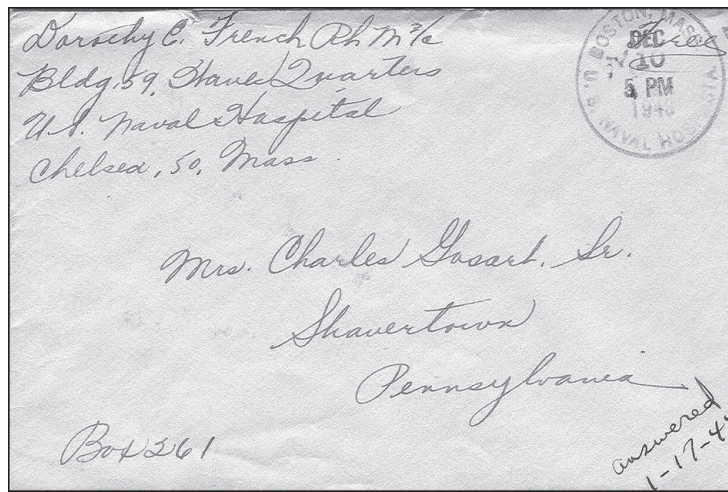 Dorothy C. French Ph M 3/c
Bldg. 59, Waves Quarters
U.S. Naval Hospital
Chelsea, 50, Mass.
Free
BOSTON, MASS.
DEC
10
5 PM
U.S. NAVAL HOSPITAL
Mrs. Charles Gosart, Sr.
Shavertown
Pennsylvania
Box 261
answered
1-17-4